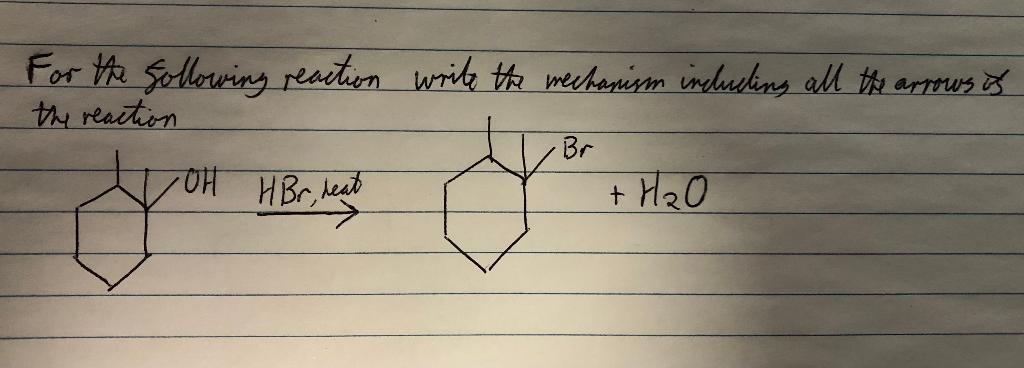 For the following reaction write the mechanism including all the arrows of
the reaction
OH HBr, heat Br + H2O